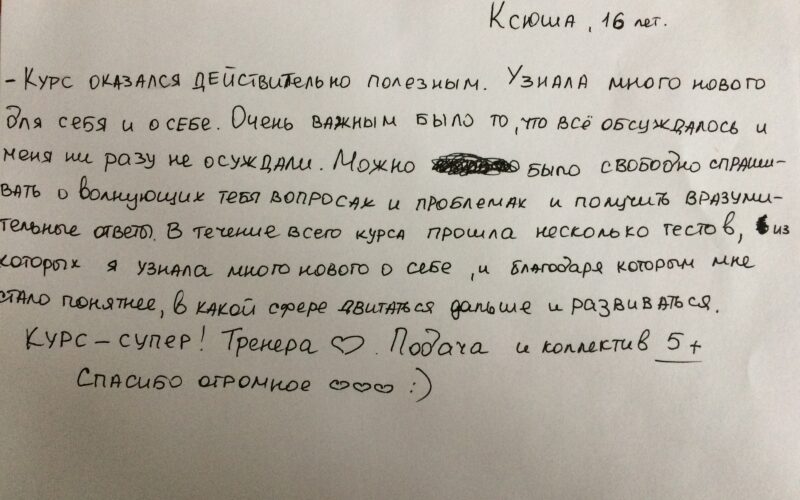 Ксюша, 16 лет.
- Курс оказался действительно полезным. Узнала много нового
для себя и о себе. Очень важным было то, что всё обсуждалось и
меня ни разу не осуждали. Можно было свободно спраши-
вать о волнующих тебя вопросах и проблемах и получить вразуми-
тельные ответы. В течение всего курса прошла несколько тестов, из
которых я узнала много нового о себе, и благодаря которым мне
стало понятнее, в какой сфере двигаться дальше и развиваться.
Курс - супер! Тренера ♡. Подача и коллектив 5+
Спасибо огромное ♡♡♡ :)